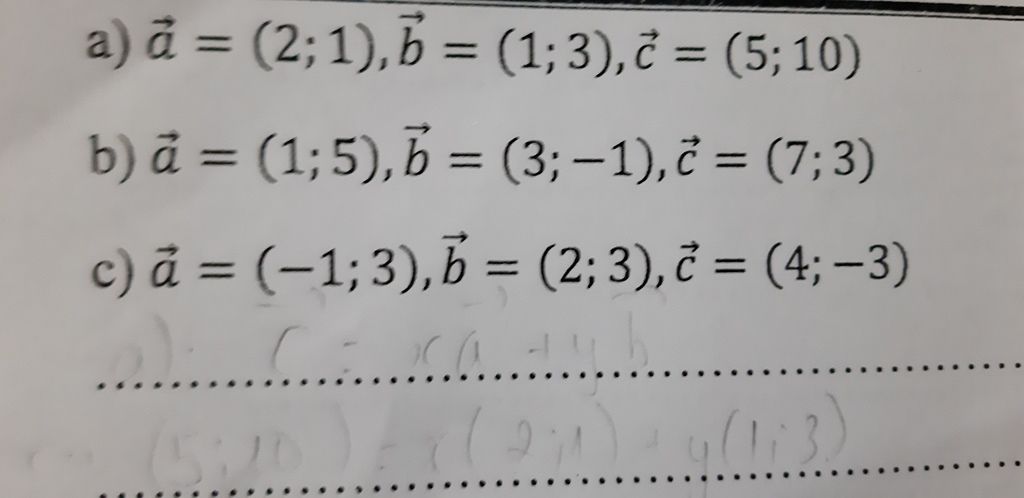 a) a⃗ = (2; 1), b⃗ = (1; 3), c⃗ = (5; 10)
b) a⃗ = (1; 5), b⃗ = (3; −1), c⃗ = (7; 3)
c) a⃗ = (−1; 3), b⃗ = (2; 3), c⃗ = (4; −3)
a): C = xa + yb
(5;10) = x(2;1) + y(1;3)